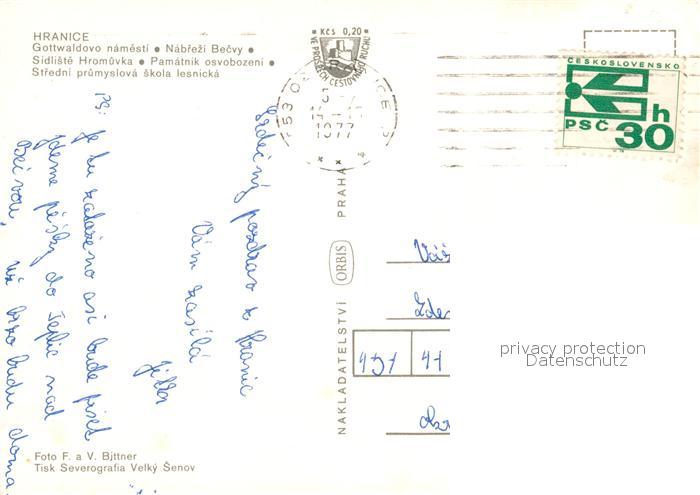 HRANICE
Gottwaldovo náměstí • Nábřeží Bečvy •
Sídliště Hromůvka • Památník osvobození •
Střední průmyslová škola lesnická
Kčs 0,20
VE PROSPĚCH CESTOVNÍHO RUCHU
1977
ČESKOSLOVENSKO
h
PSČ 30
Srdečný pozdrav z Hranic
Vám zasílá
PS: Je tu zataženo asi bude pršet
jdeme pěšky do Teplic nad
Bečvou, už brzo budu doma.
NAKLADATELSTVÍ ORBIS PRAHA
Váž
Zde
457 41
privacy protection
Datenschutz
Foto F. a V. Bjttner
Tisk Severografia Velký Šenov